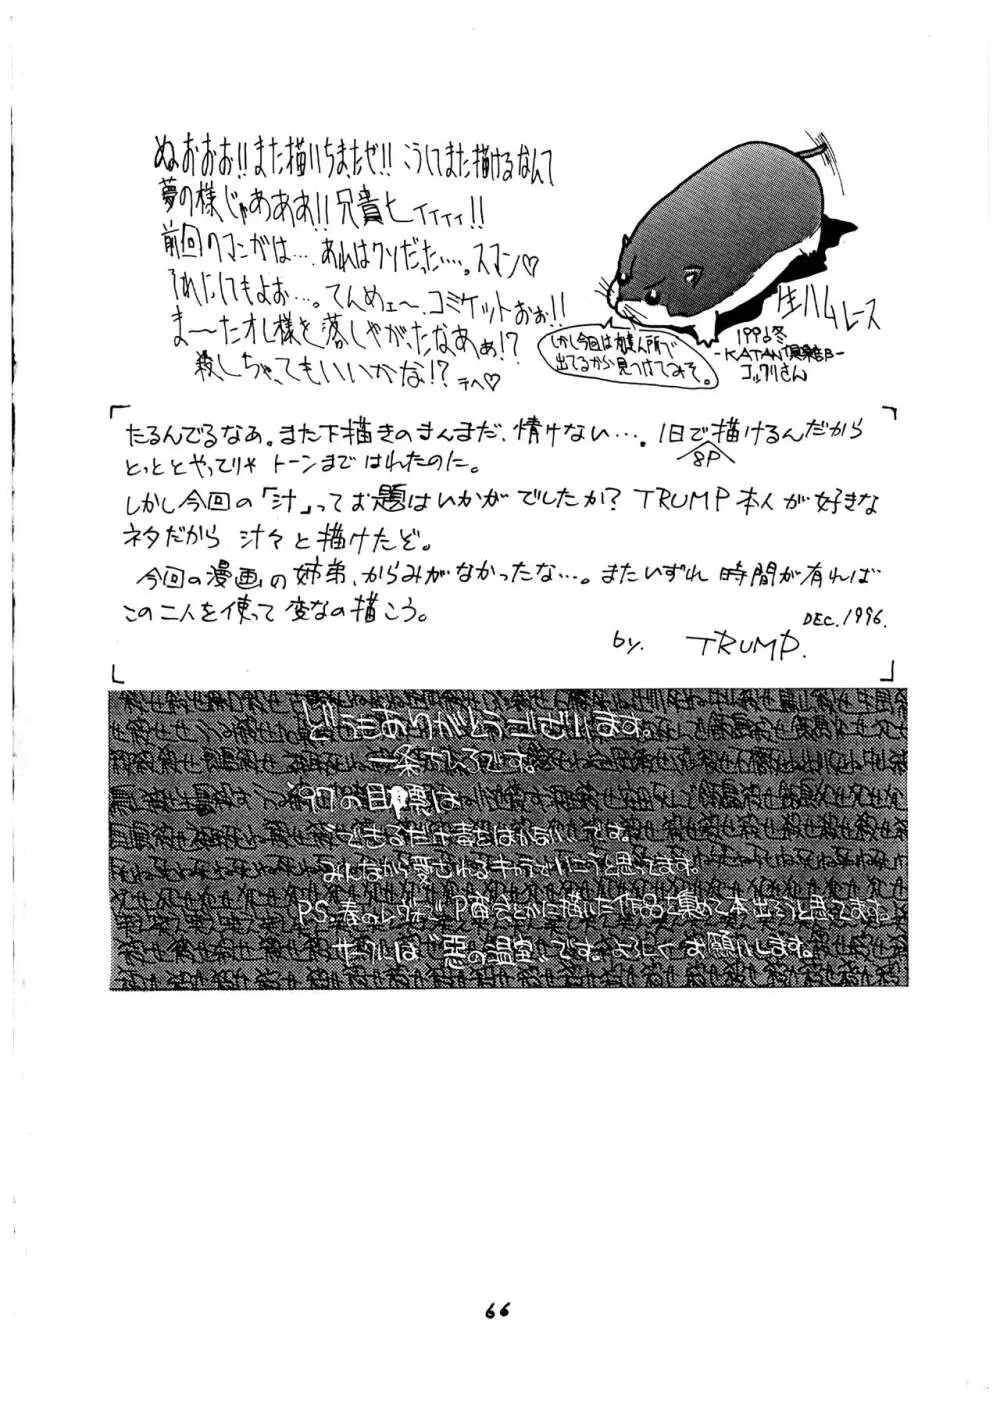 ぬおおお!!また描いちまたぜ!! こうしてまた描けるなんて
夢の様じゃあああ!!兄貴ヒィィィィ!!
前回のマンガは…あれはクソだった…。スマン♡
それにしてもよお…。てんめェ〜、コミケットおぉ!!
ま〜たオレ様を落しやがったなあぁ!?
殺しちゃってもいいかな!? テヘ♡
しかし今回は 人所で
出てるから見つけてみそ。
生ハムレース
1996冬
-KATAN倶楽部-
コックリさん
たるんでるなあ。また下描きのまんまだ、情けない…。1日で描けるんだから
8P
とっととやってりゃ トーンまで はれたのに。
しかし今回の「汁」ってお題はいかがでしたか? TRUMP本人が好きな
ネタだから 汁々と描けたぞ。
今回の漫画の姉弟、からみがなかったな…。またいずれ 時間が有れば
この二人を使って変なの描こう。
DEC.1996.
by. TRUMP.
どうもありがとうございます。
一条 です。
'97の目標は
"できるだけ毒をはかない"です。
みんなから愛されるキャラでいこうと思ってます。
P.S.春のレヴォで に描いた作品集めて本出そうと思ってます
サークルは"悪の温室"です。よろしくお願いします。
66